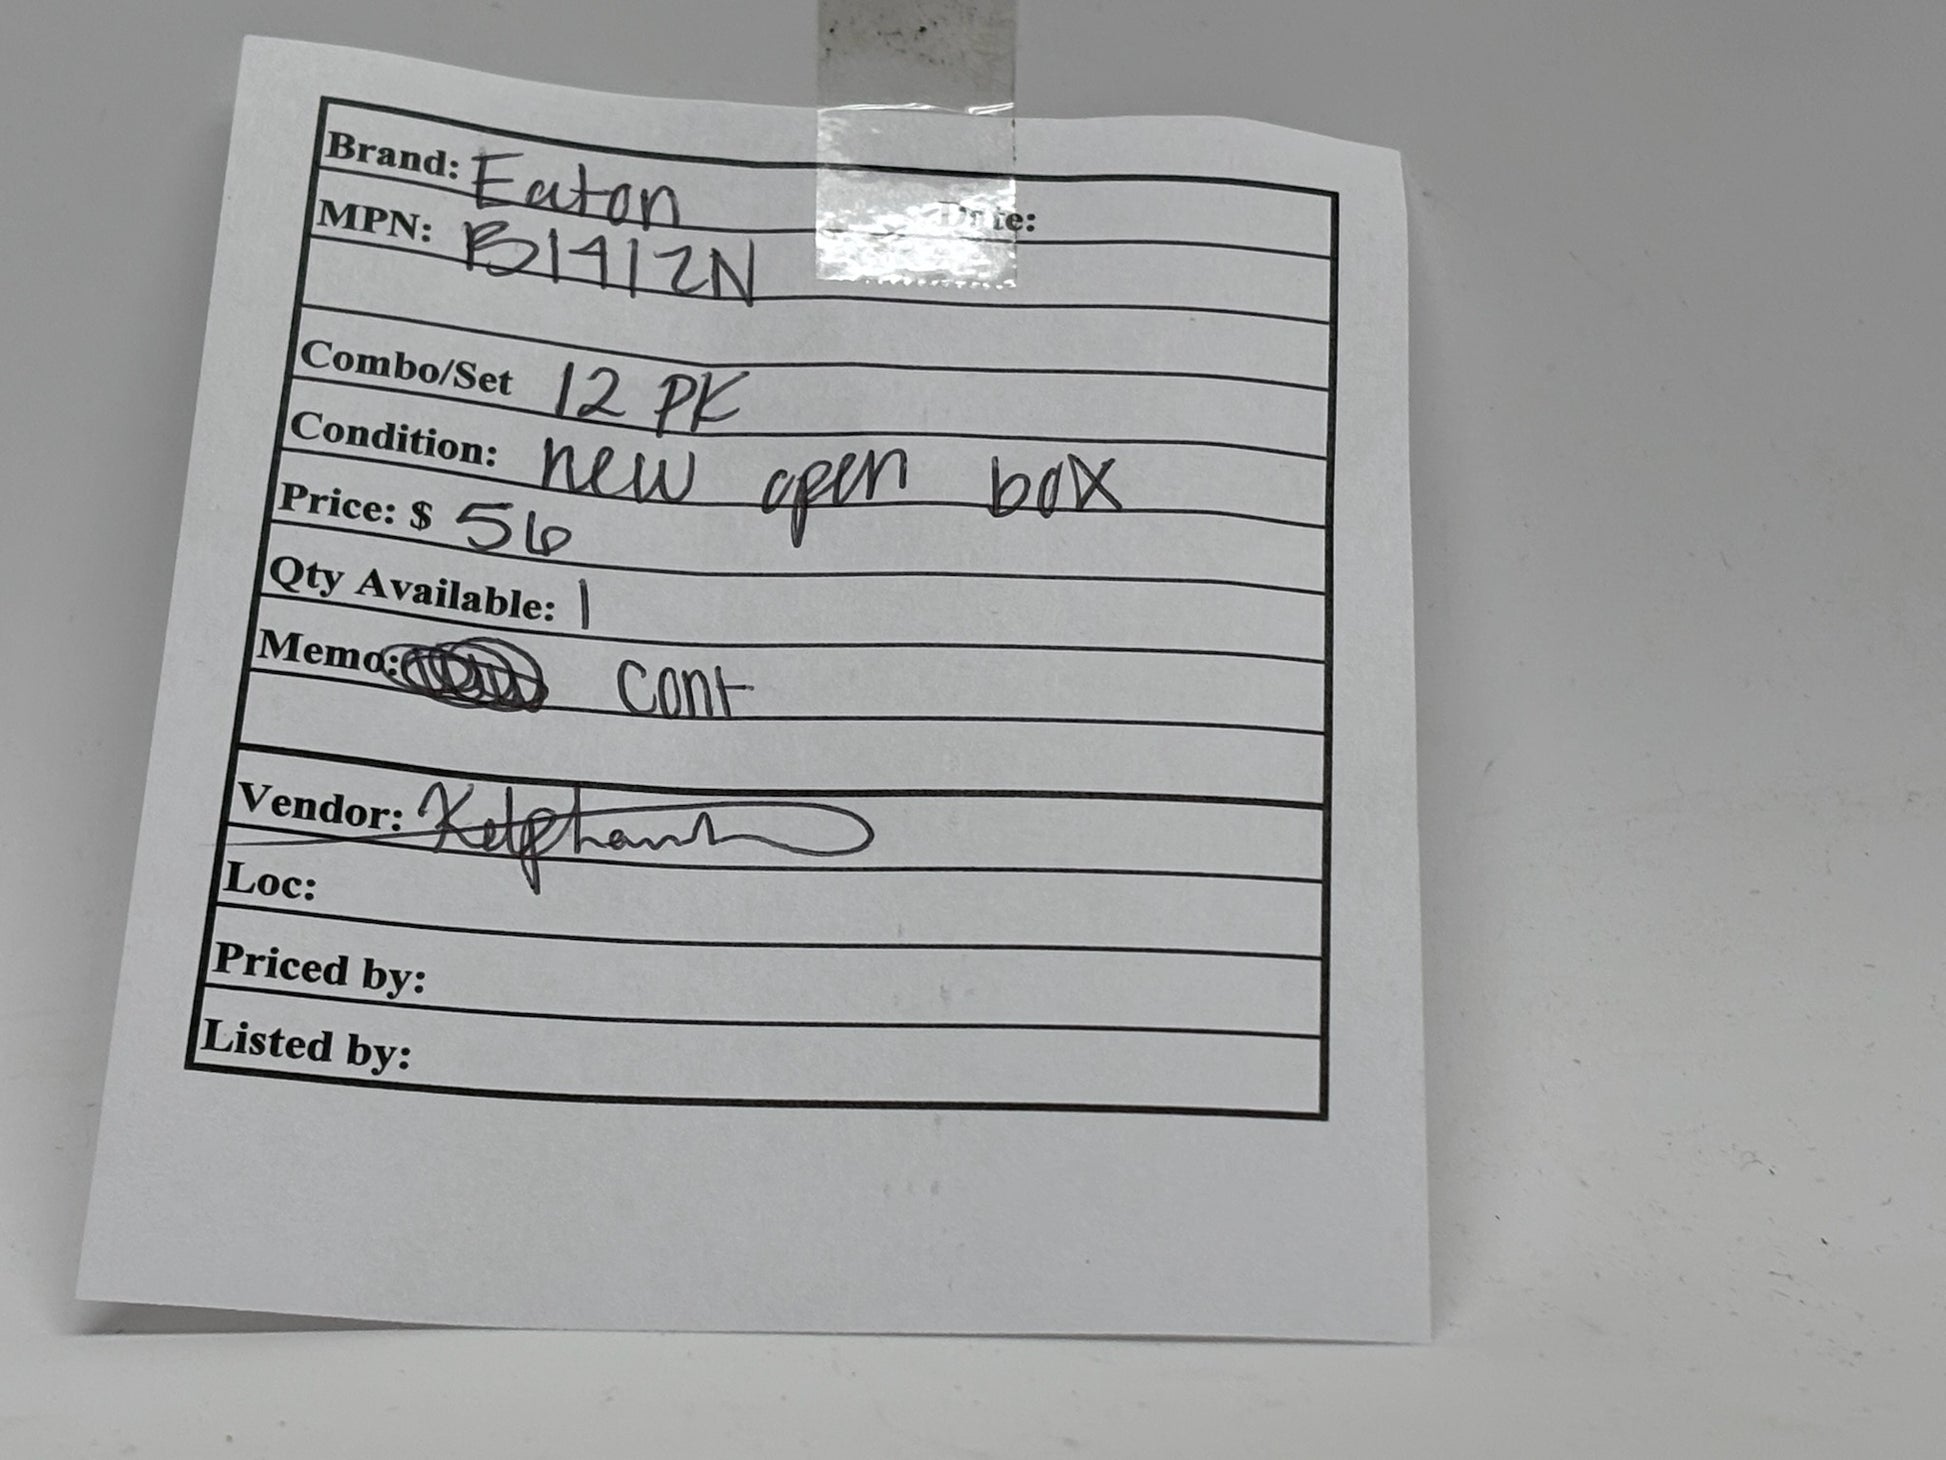 Brand: Eaton Date:
MPN: B1412N
Combo/Set 12 PK
Condition: new open box
Price: $ 56
Qty Available: 1
Memo: cont
Vendor:
Loc:
Priced by:
Listed by: